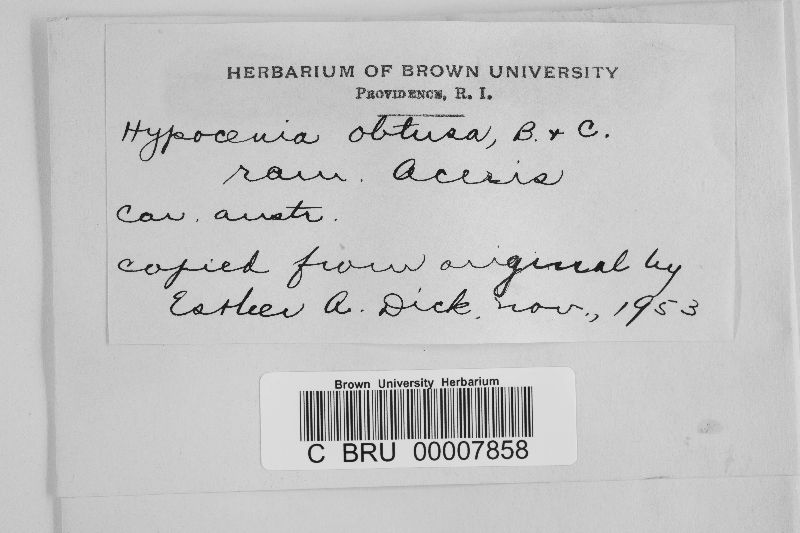 HERBARIUM OF BROWN UNIVERSITY
PROVIDENCE, R. I.
Hypocenia obtusa, B. & C.
ram. Aceris
Car. austr.
copied from original by
Esther A. Dick, nov., 1953
Brown University Herbarium
C BRU 00007858